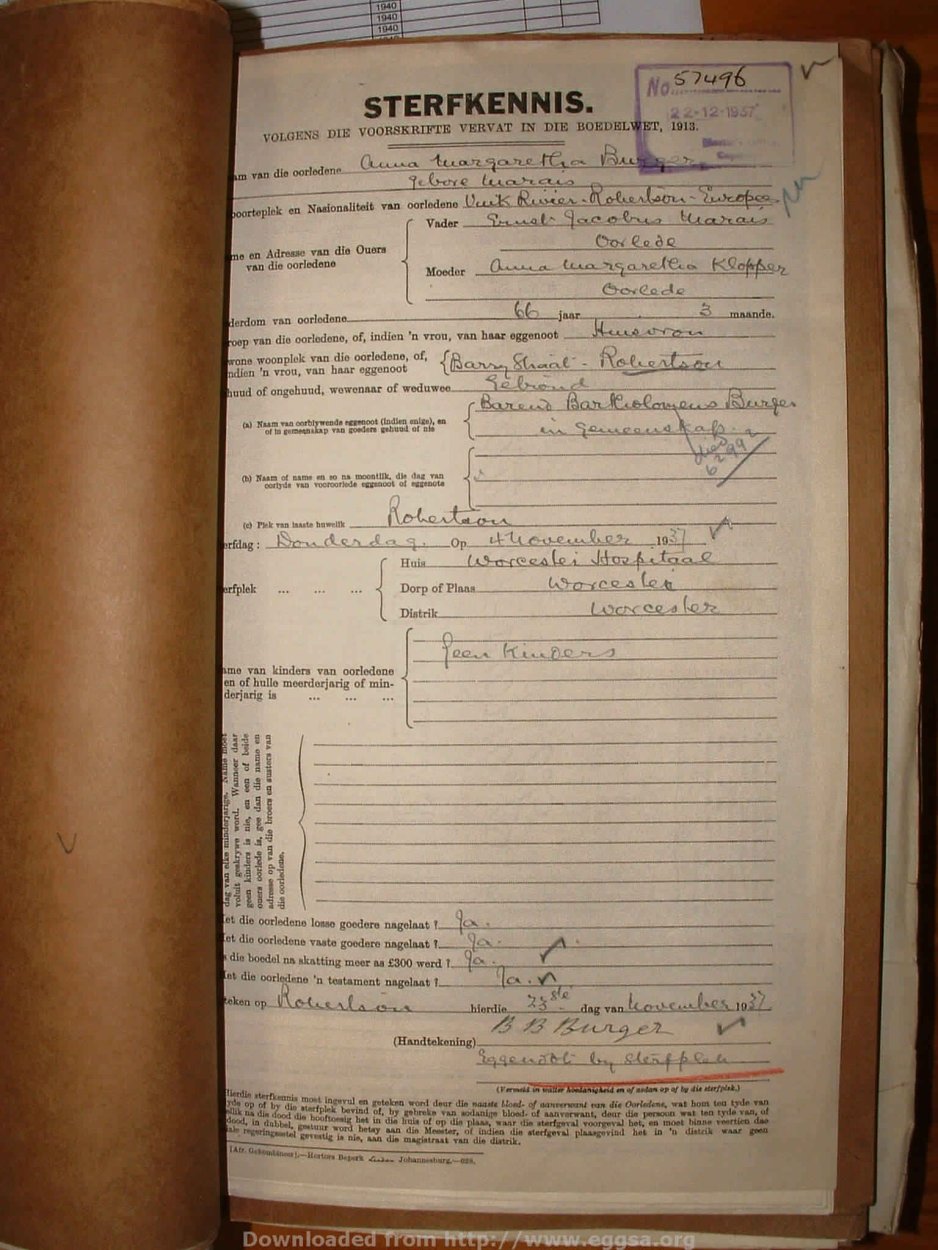 1940
1940
1940
STERFKENNIS.
No. 57496
22-12-1937
VOLGENS DIE VOORSKRIFTE VERVAT IN DIE BOEDELWET, 1913.
am van die oorledene Anna Margaretha Burger
gebore Marais
boorteplek en Nasionaliteit van oorledene Vink Rivier - Robertson - Europees
me en Adresse van die Ouers
van die oorledene
Vader Ernst Jacobus Marais
Oorlede
Moeder Anna Margaretha Klopper
Oorlede
derdom van oorledene 66 jaar 3 maande.
roep van die oorledene, of, indien 'n vrou, van haar eggenoot Huisvrou
wone woonplek van die oorledene, of,
ndien 'n vrou, van haar eggenoot
Barry Straat - Robertson
huud of ongehuud, wewenaar of weduwee Getroud
(a) Naam van oorblywende eggenoot (indien enige), en
of in gemeenskap van goedere gehuud of nie
Barend Bartholomeus Burger
in Gemeenskap
6299/2
(b) Naam of name en so na moontlik, die dag van
oorlyde van vooroorlede eggenoot of eggenote
(c) Plek van laaste huwelik Robertson
erfdag: Donderdag. Op 4 November 1937
erfplek ... ... ...
Huis Worcester Hospitaal
Dorp of Plaas Worcester
Distrik Worcester
ame van kinders van oorledene
en of hulle meerderjarig of min-
derjarig is ... ... ...
Geen Kinders
dag van elke minderjarige. Name moet
voluit geskrywe word. Wanneer daar
geen kinders is nie, en een of beide
ouers oorlede is, gee dan die name en
adresse op van die broers en susters van
die oorledene.
Het die oorledene losse goedere nagelaat? Ja.
Het die oorledene vaste goedere nagelaat? Ja.
s die boedel na skatting meer as £300 werd? Ja.
Het die oorledene 'n testament nagelaat? Ja.
teken op Robertson hierdie 23ste dag van November 1937
(Handtekening) B B Burger
Eggenoot by Sterfplek
(Vermeld in watter hoedanigheid en of sodan op of by die sterfplek.)
Hierdie sterfkennis moet ingevul en geteken word deur die naaste bloed- of aanverwant van die Oorledene, wat hom ten tyde van
yde op of by die sterfplek bevind of, by gebreke van sodanige bloed- of aanverwant, deur die persoon wat ten tyde van, of
ellik na die dood die hooftoesig het in die huis of op die plaas, waar die sterfgeval voorgeval het, en moet binne veertien dae
dood, in dubbel, gestuur word hetsy aan die Meester, of indien die sterfgeval plaasgevind het in 'n distrik waar geen
ale regeringsetel gevestig is nie, aan die magistraat van die distrik.
Hortors Beperk Johannesburg.—628.
Downloaded from http://www.eggsa.org